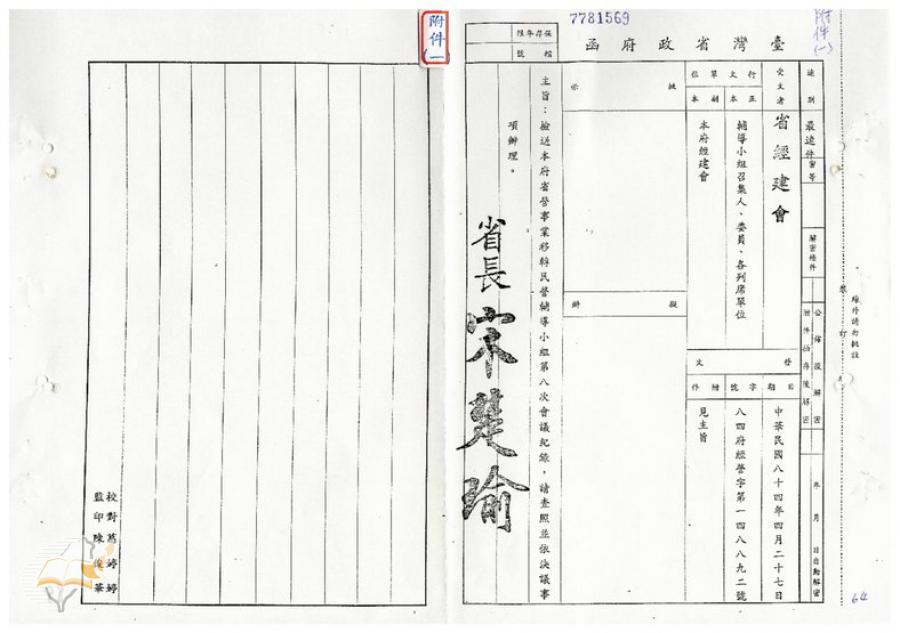 7781569
附件(一)
臺灣省政府函
保存年限
檔號
速別
最速件
密等
解密條件
公佈後解密
附件抽存後解密
年月日自動解密
受文者
省經建會
行文單位
正本
輔導小組召集人、委員、各列席單位
副本
本府經建會
發文
日期
中華民國八十四年四月二十七日
字號
八四府經營字第一四八八九二號
附件
見主旨
批示
擬辦
主旨：檢送本府省營事業移轉民營輔導小組第八次會議紀錄，請查照並依決議事
項辦理。
省長宋楚瑜
裝
訂
64
附件(一)
校對葛婷婷
監印陳
華